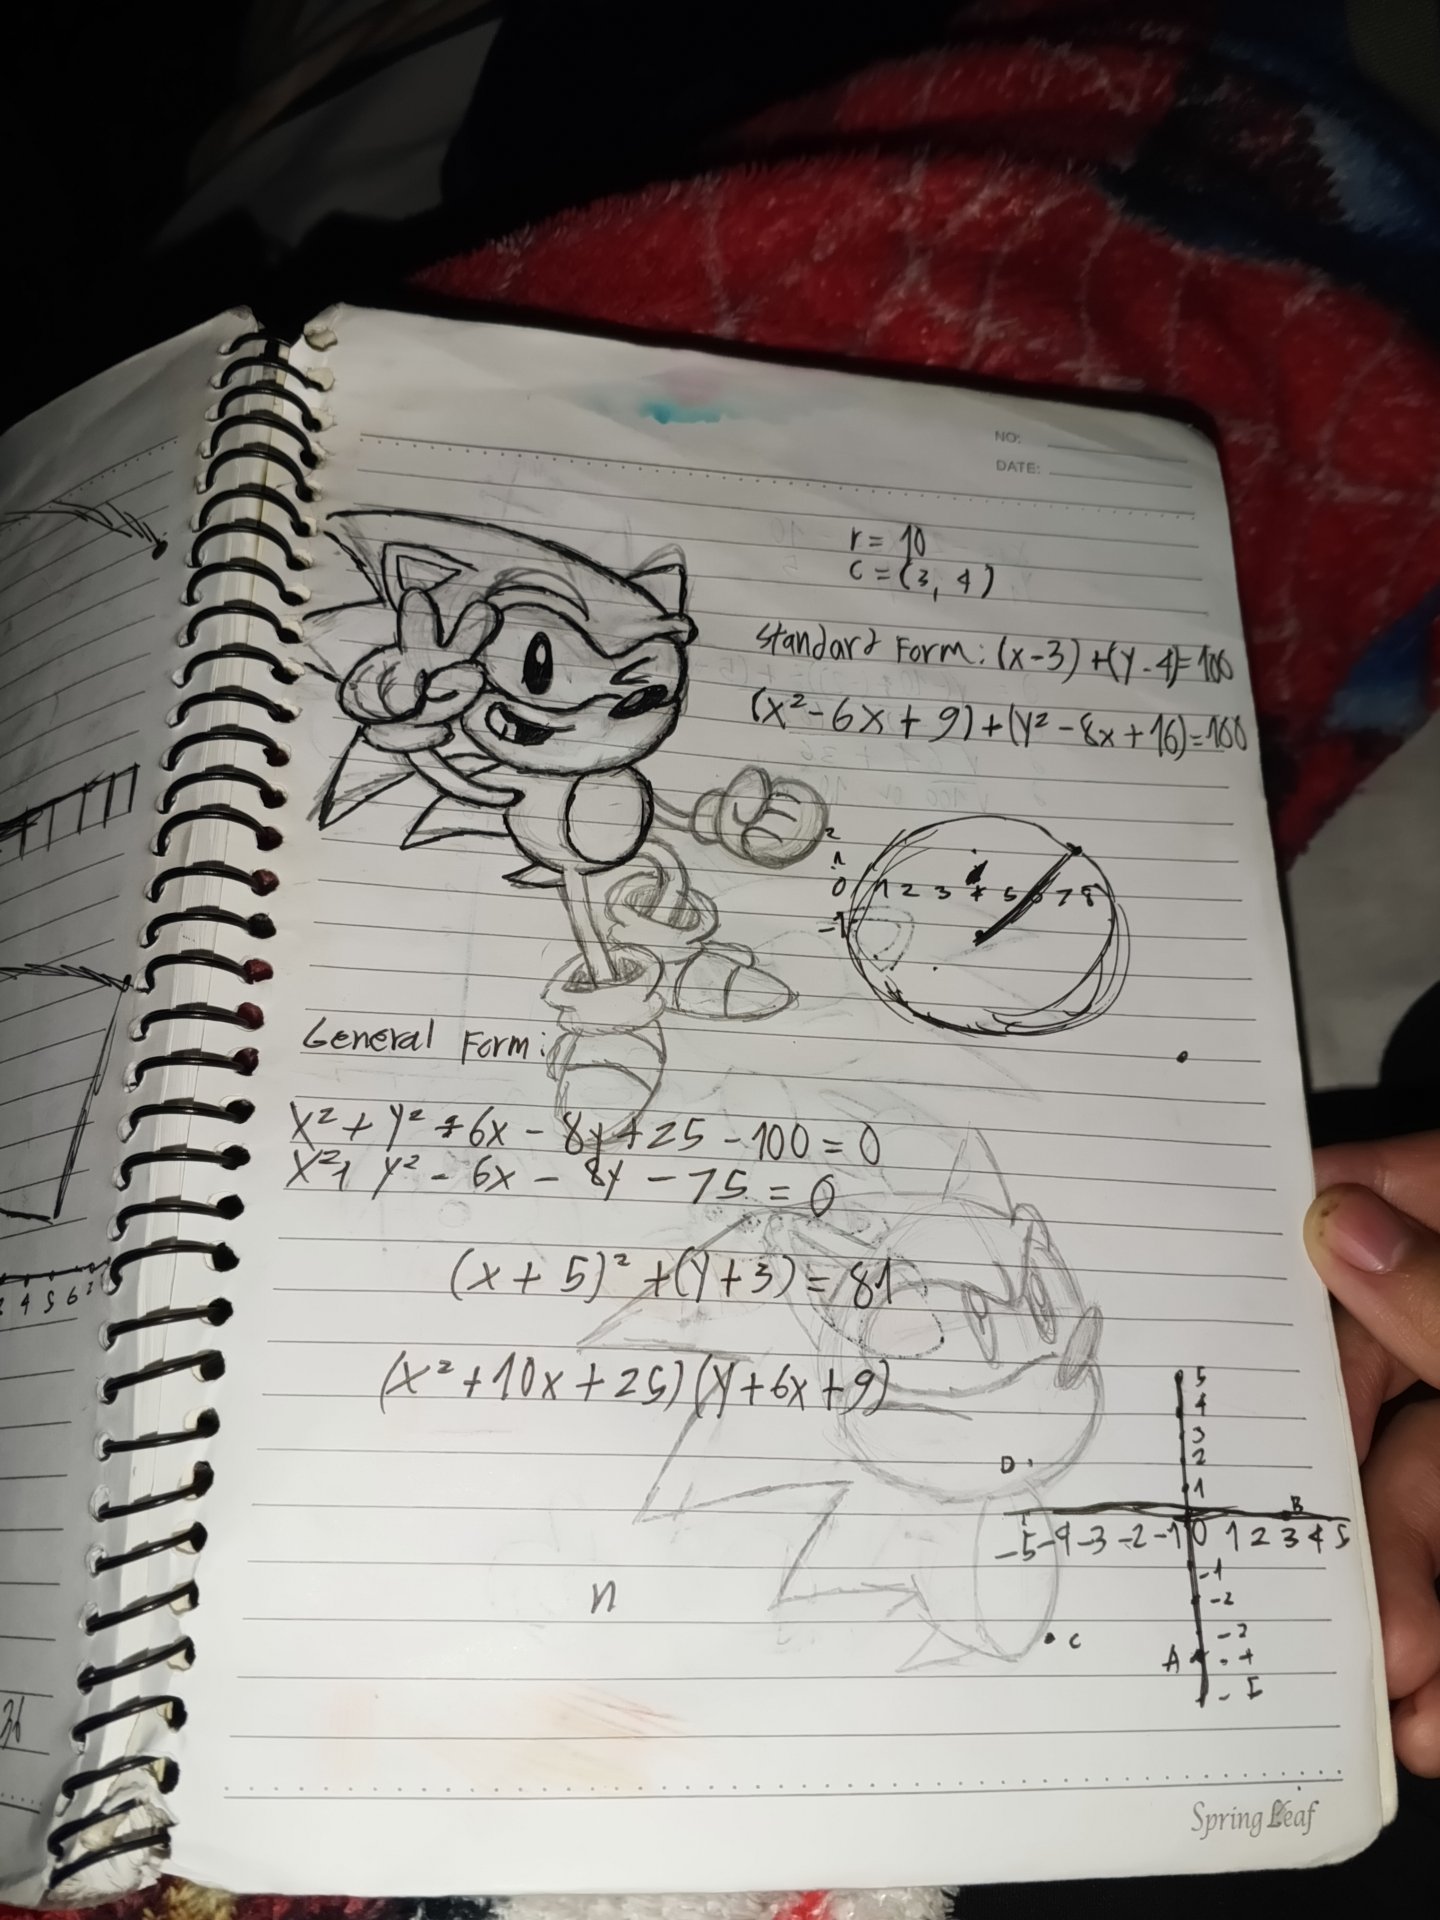 NO:
DATE:
r = 10
C = (3, 4)
Standard Form: (x-3)+(y-4)=100
(x²-6x+9)+(y²-8x+16)=100
2
1
0 1 2 3 4 5 6 7 8
-1
General Form:
x²+y²-6x-8y+25-100=0
x²+y²-6x-8y-75=0
(x+5)²+(y+3)=81
(x²+10x+25)(y+6x+9)
5
4
3
2
D
1
B
-5 -4 -3 -2 -1 0 1 2 3 4 5
-1
-2
n
C
A
Spring Leaf